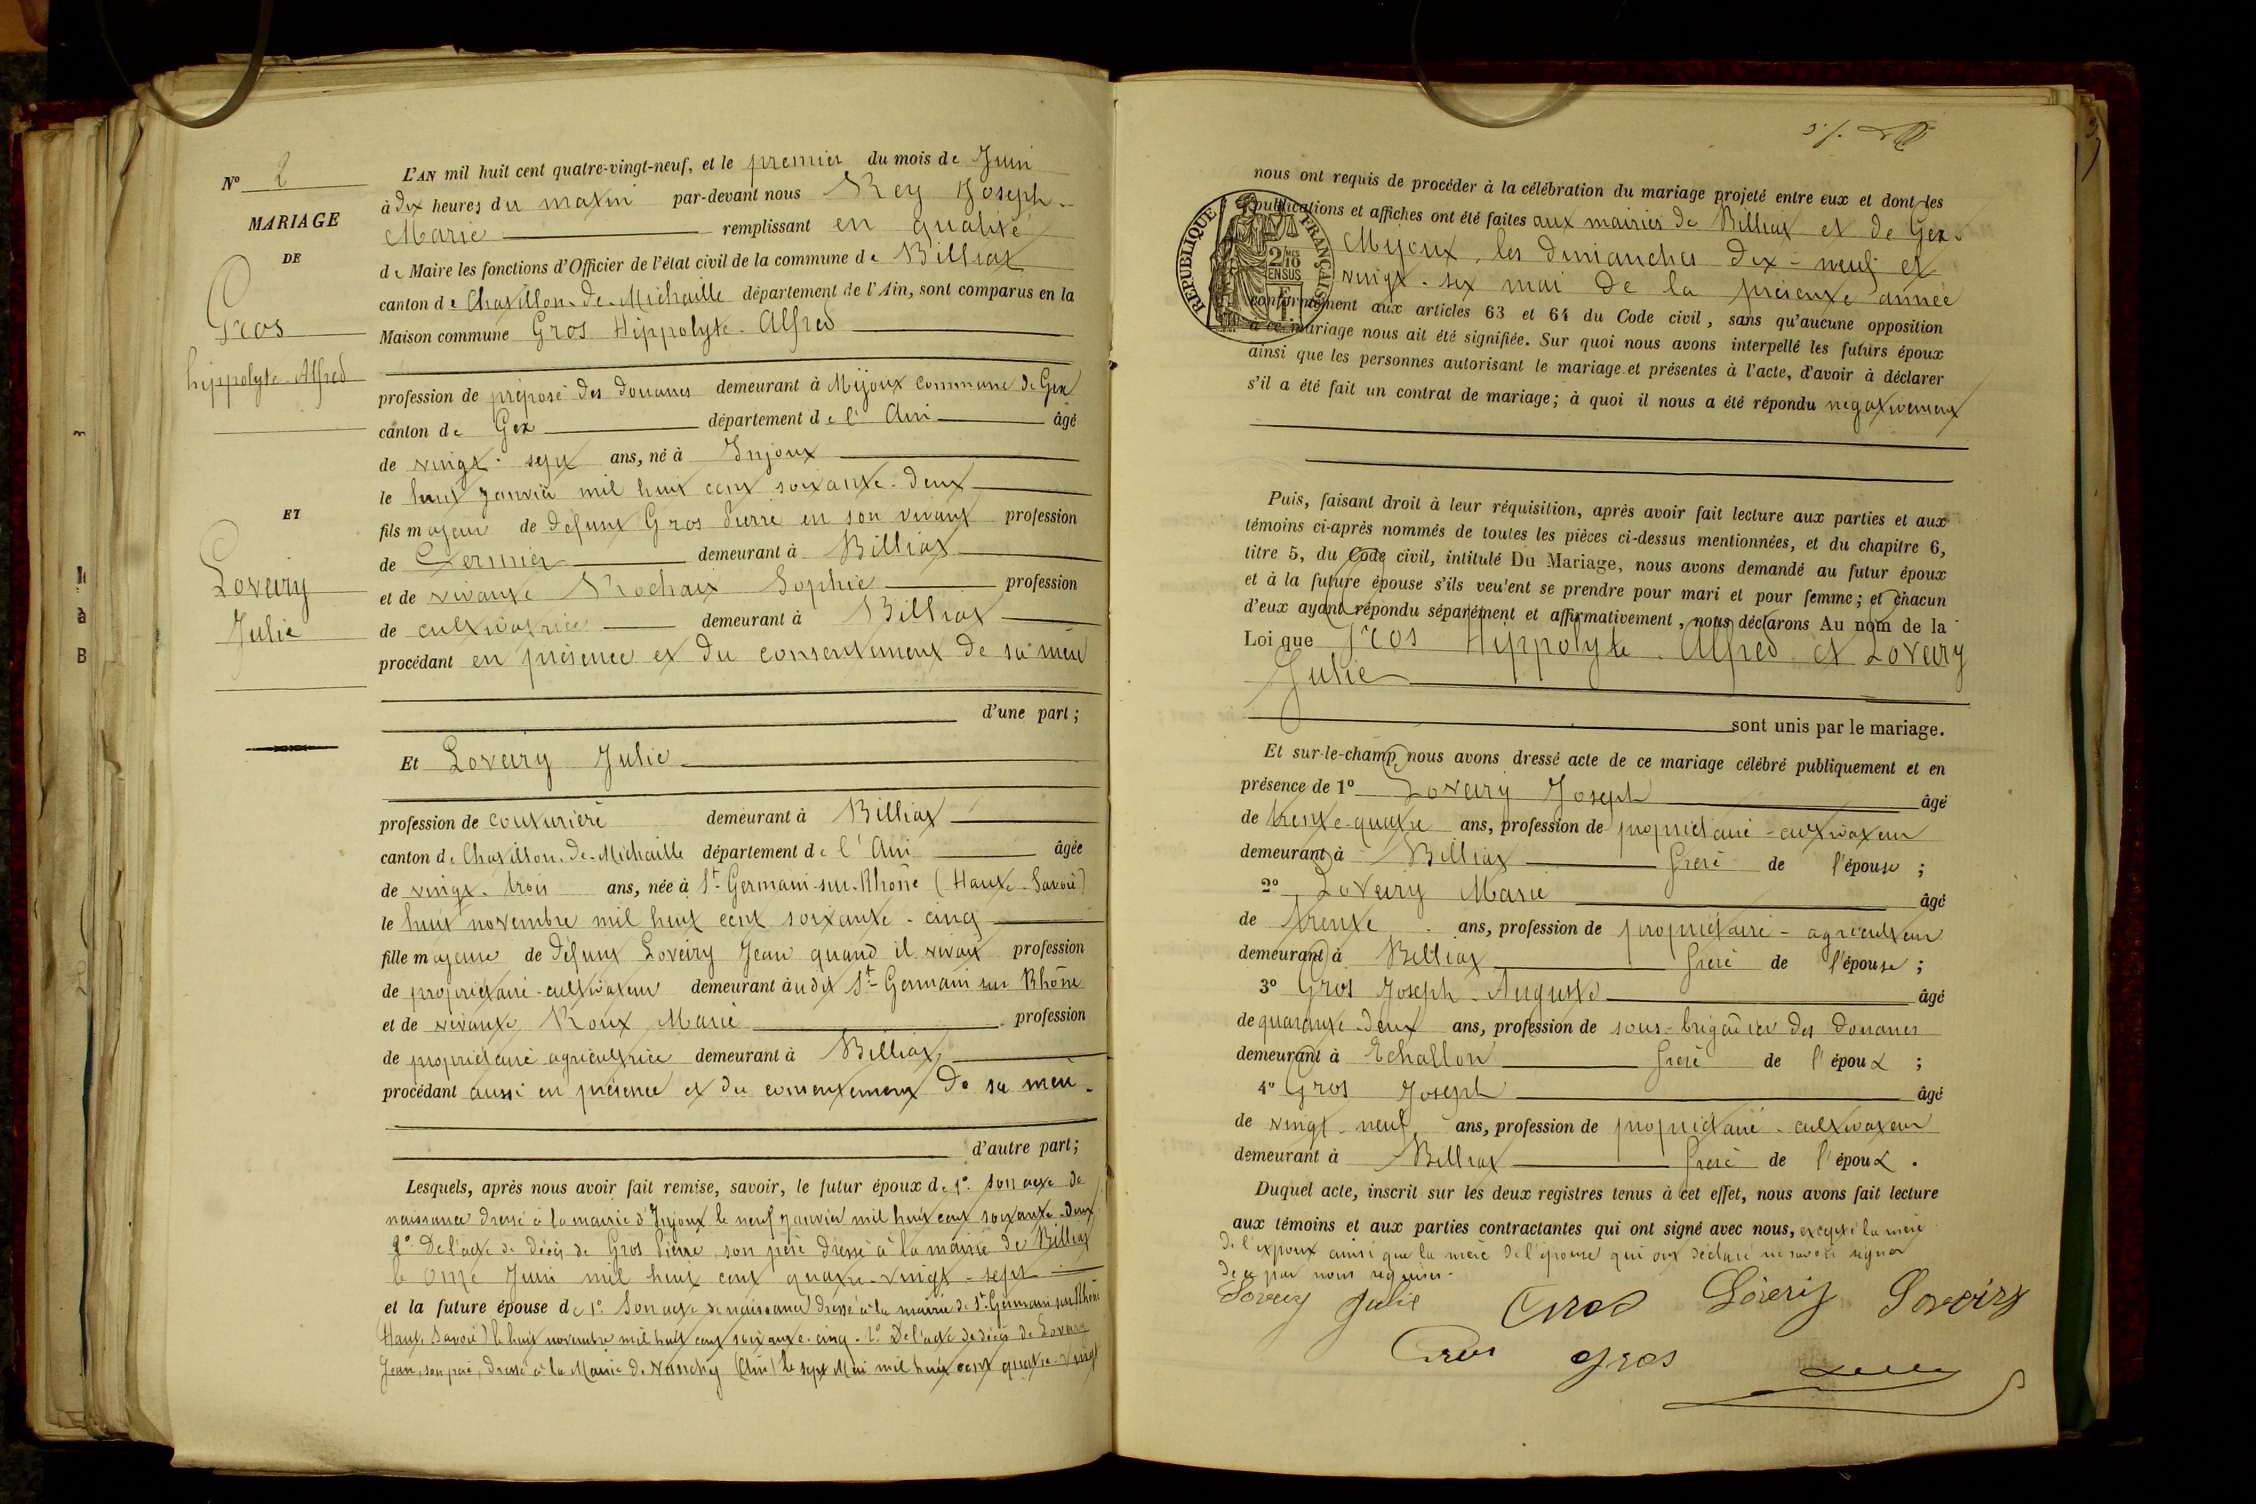 N° 2
MARIAGE
DE
Gros
hippolyte-Alfred
ET
Loveiry
Julie
L'AN mil huit cent quatre-vingt-neuf, et le premier du mois de Juin
à dix heures du matin par-devant nous Rey Joseph-
Marie remplissant en qualité
de Maire les fonctions d'Officier de l'état civil de la commune de Billiat
canton de Chatillon-de-Michaille département de l'Ain, sont comparus en la
Maison commune Gros Hippolyte-Alfred
profession de préposé des douanes demeurant à Mijoux commune de Gex
canton de Gex département de l'Ain âgé
de vingt-sept ans, né à Injoux
le huit Janvier mil huit cent soixante-deux
fils majeur de défunt Gros Pierre en son vivant profession
de fermier demeurant à Billiat
et de vivante Rochaix Sophie profession
de cultivatrice demeurant à Billiat
procédant en présence et du consentement de sa mère
d'une part;
Et Loveiry Julie
profession de couturière demeurant à Billiat
canton de Chatillon-de-Michaille département de l'Ain âgée
de vingt-trois ans, née à St-Germain-sur-Rhône (Haute-Savoie)
le huit novembre mil huit cent soixante-cinq
fille majeure de défunt Loveiry Jean quand il vivait profession
de propriétaire-cultivateur demeurant àudit St-Germain sur Rhône
et de vivante Roux Marie profession
de propriétaire agricultrice demeurant à Billiat
procédant aussi en présence et du consentement de sa mère-
d'autre part;
Lesquels, après nous avoir fait remise, savoir, le futur époux de 1° Son acte de
naissance dressé à la mairie d'Injoux le neuf Janvier mil huit cent soixante-deux
2° De l'acte de décès de Gros Pierre, son père dressé à la mairie de Billiat
le onze Juin mil huit cent quatre-vingt-sept
et la future épouse de 1° Son acte de naissance dressé à la mairie de St-Germain sur Rhône
(Haute Savoie) le huit novembre mil huit cent soixante-cinq- 2° De l'acte de décès de Loveiry
Jean, son père, dressé à la Mairie de (Ain) le sept Mai mil huit cent quatre-vingt
RÉPUBLIQUE FRANÇAISE
2/10 EN SUS
nous ont requis de procéder à la célébration du mariage projeté entre eux et dont les
publications et affiches ont été faites aux mairies de Billiat et de Gex-
Mijoux, les dimanches dix-neuf et
vingt-six mai de la présente année
conformément aux articles 63 et 64 du Code civil, sans qu'aucune opposition
à ce mariage nous ait été signifiée. Sur quoi nous avons interpellé les futurs époux
ainsi que les personnes autorisant le mariage et présentes à l'acte, d'avoir à déclarer
s'il a été fait un contrat de mariage; à quoi il nous a été répondu négativement
Puis, faisant droit à leur réquisition, après avoir fait lecture aux parties et aux
témoins ci-après nommés de toutes les pièces ci-dessus mentionnées, et du chapitre 6,
titre 5, du Code civil, intitulé Du Mariage, nous avons demandé au futur époux
et à la future épouse s'ils veulent se prendre pour mari et pour femme; et chacun
d'eux ayant répondu séparément et affirmativement, nous déclarons Au nom de la
Loi que Gros Hippolyte-Alfred et Loveiry
Julie
sont unis par le mariage.
Et sur-le-champ, nous avons dressé acte de ce mariage célébré publiquement et en
présence de 1° Loveiry Joseph âgé
de trente-quatre ans, profession de propriétaire-cultivateur
demeurant à Billiat frère de l'épouse;
2° Loveiry Marie âgé
de trente ans, profession de propriétaire-agriculteur
demeurant à Billiat frère de l'épouse;
3° Gros Joseph-Auguste âgé
de quarante-deux ans, profession de sous-brigadier des douanes
demeurant à Echallon frère de l'époux;
4° Gros Joseph âgé
de vingt-neuf ans, profession de propriétaire-cultivateur
demeurant à Billiat frère de l'époux.
Duquel acte, inscrit sur les deux registres tenus à cet effet, nous avons fait lecture
aux témoins et aux parties contractantes qui ont signé avec nous, excepté la mère
de l'époux ainsi que la mère de l'épouse qui ont déclaré ne savoir signer
de ce par nous requises.
Loveiry Julie Gros Lovéry Loveiry
Gros Gros